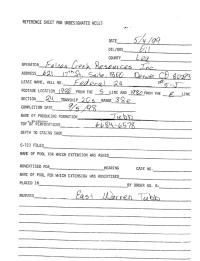 REFERENCE SHEET FOR UNDESIGNATED WELLS
DATE 5/4/99
OIL/GAS Oil
COUNTY Lea
OPERATOR Falcon Creek Resources Inc
ADDRESS 621 17th St. Suite 1800 Denver CO
LEASE NAME, WELL NO. Federal 24
FOOTAGE LOCATION 1980 FROM THE S LINE AND 1980 FROM THE E LINE
SECTION 24 TOWNSHIP 20S RANGE 38E
COMPLETION DATE 9/5/98
NAME OF PRODUCING FORMATION Tubb
TOP OF PERFORATIONS 6484-6578
DEPTH TO CASING SHOE
C-123 FILED
NAME OF POOL FOR WHICH EXTENSION WAS ASKED
ADVERTISED FOR HEARING CASE NO.
NAME OF POOL FOR WHICH EXTENSION WAS ADVERTISED
PLACED IN BY ORDER NO. R-
REMARKS East Warren Tubb